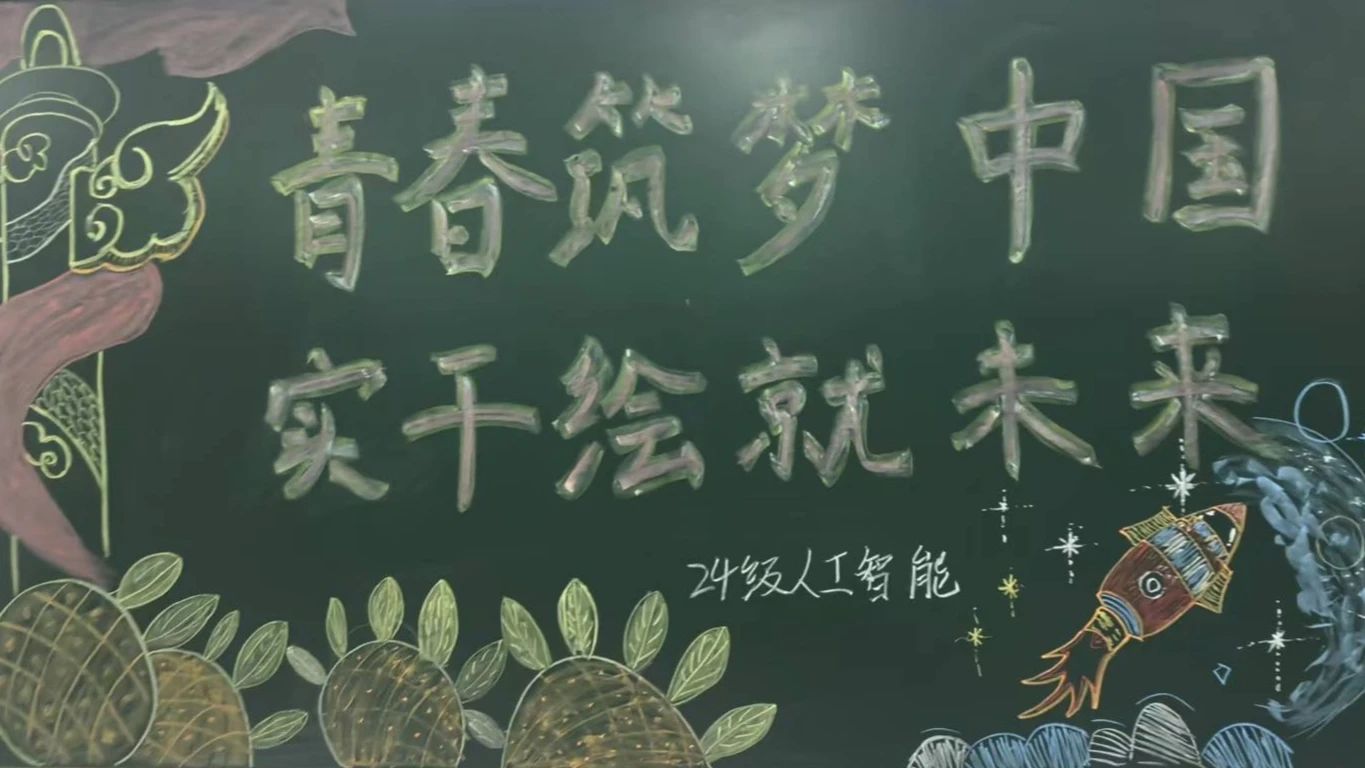 青春筑梦 中国
实干绘就 未来
24级人工智能